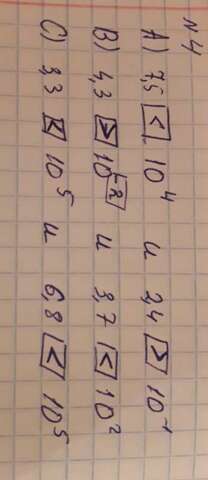 N4
A) 7,5 < 10⁴ и 2,4 > 10⁻¹
B) 4,3 > 10⁻² и 3,7 < 10²
C) 3,3 < 10⁵ и 6,8 < 10⁵